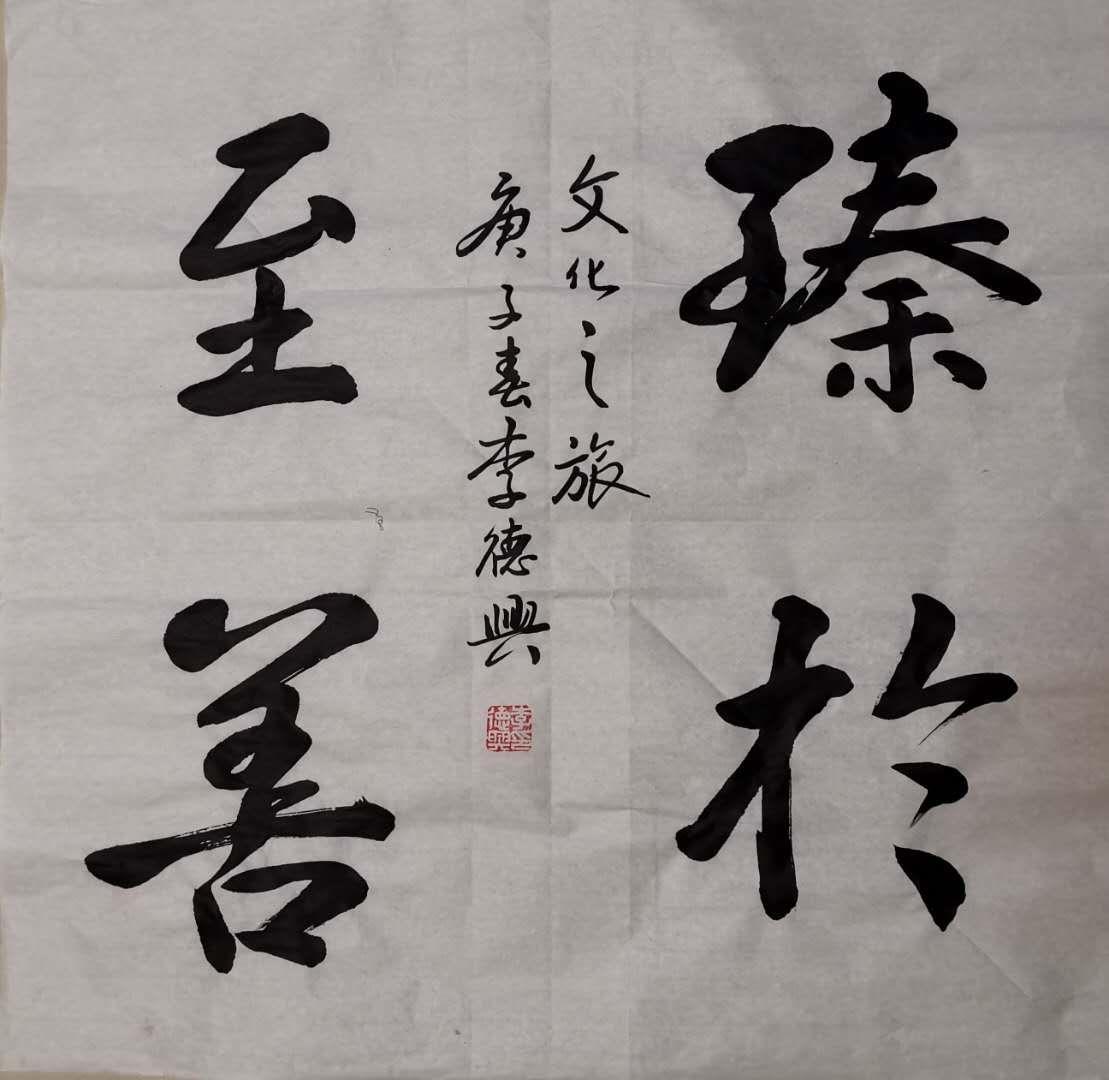 臻於
至善
文化之旅
庚子春李德興
李德興印